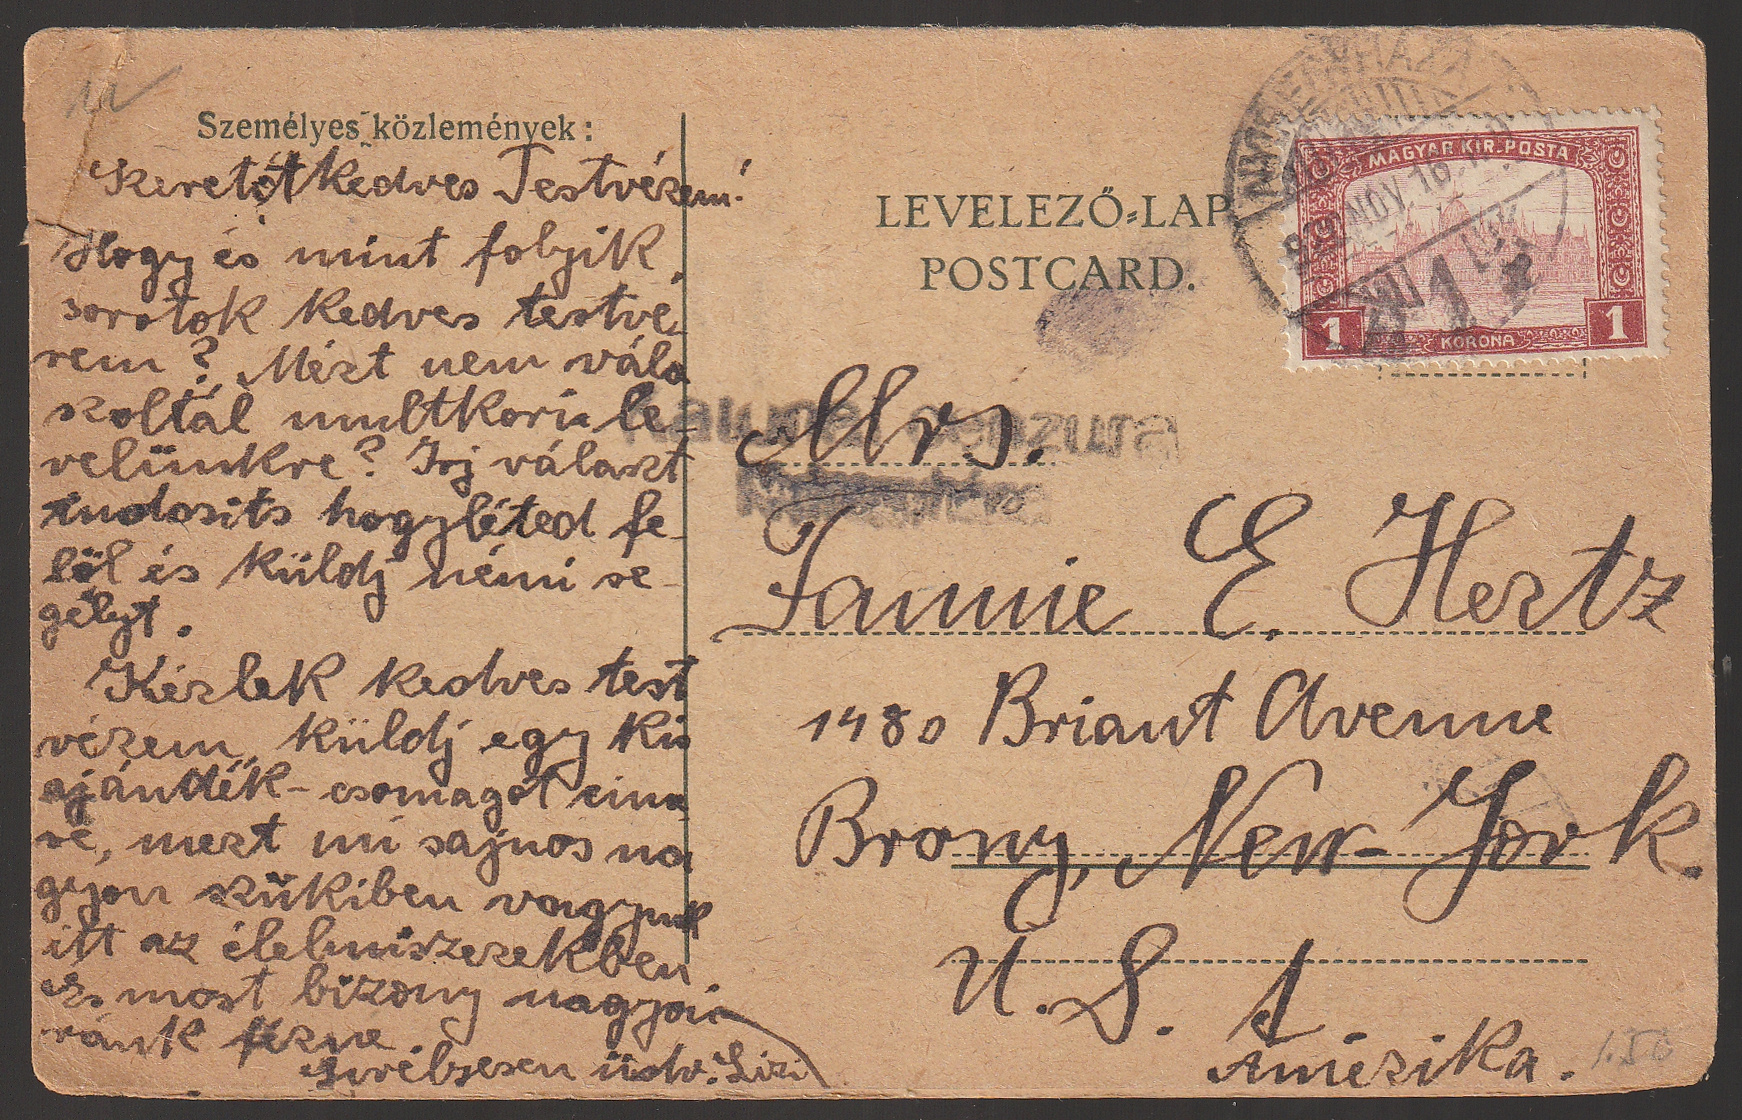 Személyes közlemények:
Szeretőtkedves Testvérem!
Hogy és mint folyik
sorotok kedves testvé-
rem? Mért nem vála
szoltál multkori le-
velünkre? Irj választ
tudosits hogyléted fe-
löl és küldj némi se-
gélyt.
Kérlek kedves test
vérem küldj egy kis
ajándék-csomagot cimem
re, mert mi sajnos na
gyon szükiben vagyunk
itt az élelmiszerekben
És most bizony nagyon
ránk férne.
Szivélyesen üdv. Lizi
LEVELEZŐ-LAP
POSTCARD.
NYIREGYHÁZA
NOV. 16.
MAGYAR KIR. POSTA
1 KORONA 1
Katonai cenzura
Mrs.
Fannie E. Hertz
1480 Briant Avenue
Brony, New-York.
U. S. A.
Amérika.
1.50